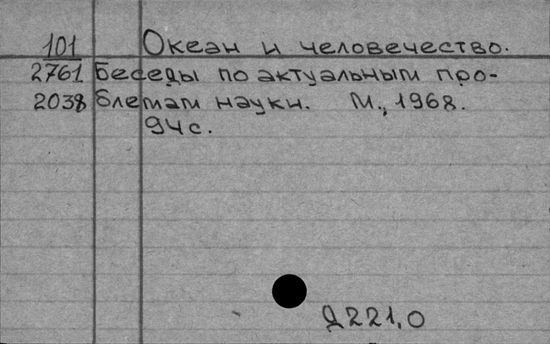 101 Океан и человечество.
2761 Беседы по актуальным про-
2038 блемам науки. М., 1968.
94с.
Д221,0